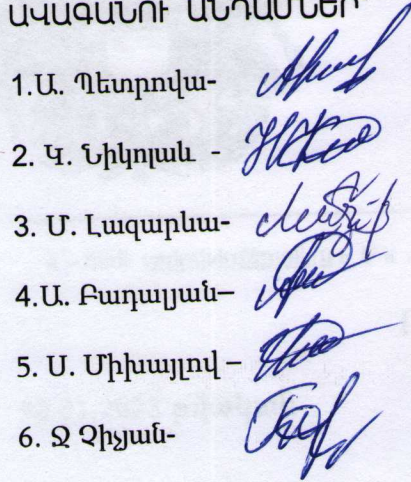 ԱՎԱԳԱՆՈՒ ԱՆԴԱՄՆԵՐ
1.Ա. Պետրովա-
2. Կ. Նիկոլաև -
3. Մ. Լազարևա-
4.Ա. Բաղալյան–
5. Ս. Միխայլով –
6. Ջ Չիչյան-